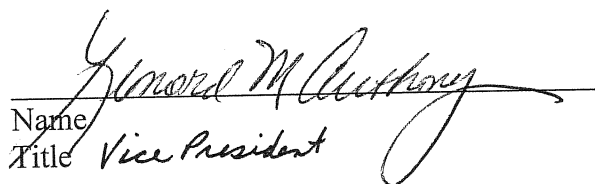 Lenard M Anthony
Name
Title Vice President